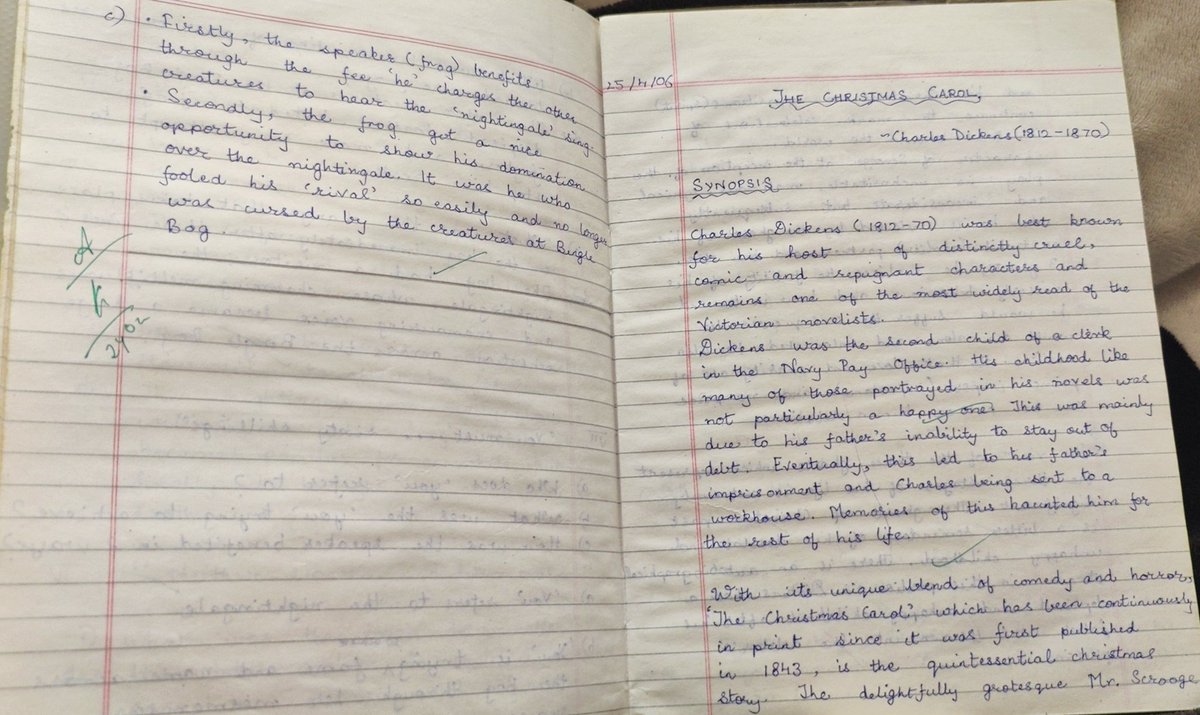 c) • Firstly, the speaker (frog) benefits
through the fee 'he' charges the other
creatures to hear the 'nightingale' sing.
• Secondly, the frog got a nice
opportunity to show his domination
over the nightingale. It was he who
fooled his 'rival' so easily and no longer
was cursed by the creatures at Bingle
Bog.
25/4/06
THE CHRISTMAS CAROL.
~Charles Dickens (1812-1870)
SYNOPSIS
Charles Dickens (1812-70) was best known
for his host of distinctly cruel,
comic and repugnant characters and
remains one of the most widely read of the
Victorian novelists.
Dickens was the second child of a clerk
in the Navy Pay Office. His childhood like
many of those portrayed in his novels was
not particularly a happy one. This was mainly
due to his father's inability to stay out of
debt. Eventually, this led to his father's
imprisonment and Charles being sent to a
workhouse. Memories of this haunted him for
the rest of his life.
With its unique blend of comedy and horror,
'The Christmas Carol' which has been continuously
in print since it was first published
in 1843, is the quintessential christmas
story. The delightfully grotesque Mr. Scrooge